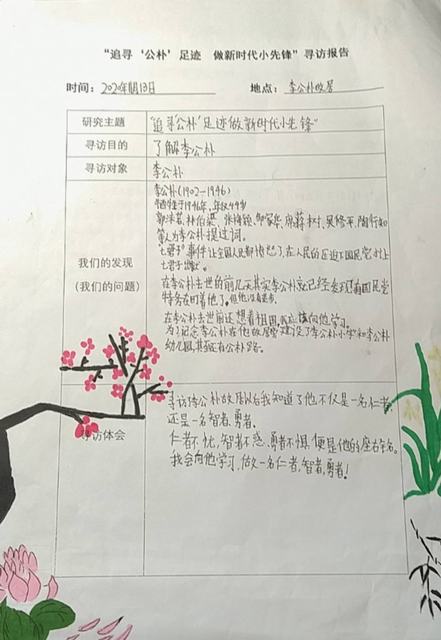 “追寻‘公朴’足迹 做新时代小先锋”寻访报告
时间：2020年11月13日 地点：李公朴故居
研究主题 “追寻‘公朴’足迹做新时代小先锋”
寻访目的 了解李公朴
寻访对象 李公朴
李公朴(1902-1946)
牺牲于1946年,年仅44岁
郭沫若、林伯渠、张海
等人为李公朴提过词。
“七君子”事件让全国人民都愤怒了,在人民的压迫下国民党
我们的发现
（我们的问题）
在李公朴去世的前几天其实李公朴就已经发现有国民党
特务在盯着他了。但他没有
在李公朴去世前还想着祖国,我应该向他学习。
为了纪念李公朴在他故居旁建设了李公朴小学和李公朴
幼儿园,甚至还有公朴路。
寻访体会
寻访李公朴故居以后我知道了他不仅是一名仁者
还是一名智者、勇者。
仁者不忧,智者不惑,勇者不惧,便是他的座右铭。
我会向他学习,做一名仁者,智者,勇者!